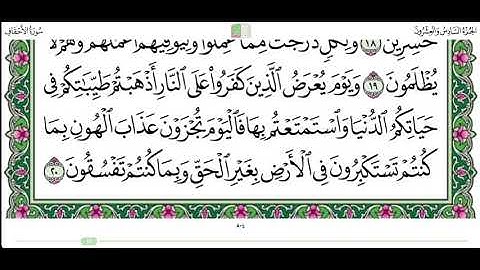 سُورَةُ الأَحْقَافِ
الجُزْءُ السَّادِسُ وَالعِشْرُونَ
خَٰسِرِينَ ١٨ وَلِكُلٍّ دَرَجَٰتٌ مِّمَّا عَمِلُوا۟ وَلِيُوَفِّيَهُمْ أَعْمَٰلَهُمْ وَهُمْ لَا
يُظْلَمُونَ ١٩ وَيَوْمَ يُعْرَضُ ٱلَّذِينَ كَفَرُوا۟ عَلَى ٱلنَّارِ أَذْهَبْتُمْ طَيِّبَٰتِكُمْ فِى
حَيَاتِكُمُ ٱلدُّنْيَا وَٱسْتَمْتَعْتُم بِهَا فَٱلْيَوْمَ تُجْزَوْنَ عَذَابَ ٱلْهُونِ بِمَا
كُنتُمْ تَسْتَكْبِرُونَ فِى ٱلْأَرْضِ بِغَيْرِ ٱلْحَقِّ وَبِمَا كُنتُمْ تَفْسُقُونَ ٢٠
٥٠٤